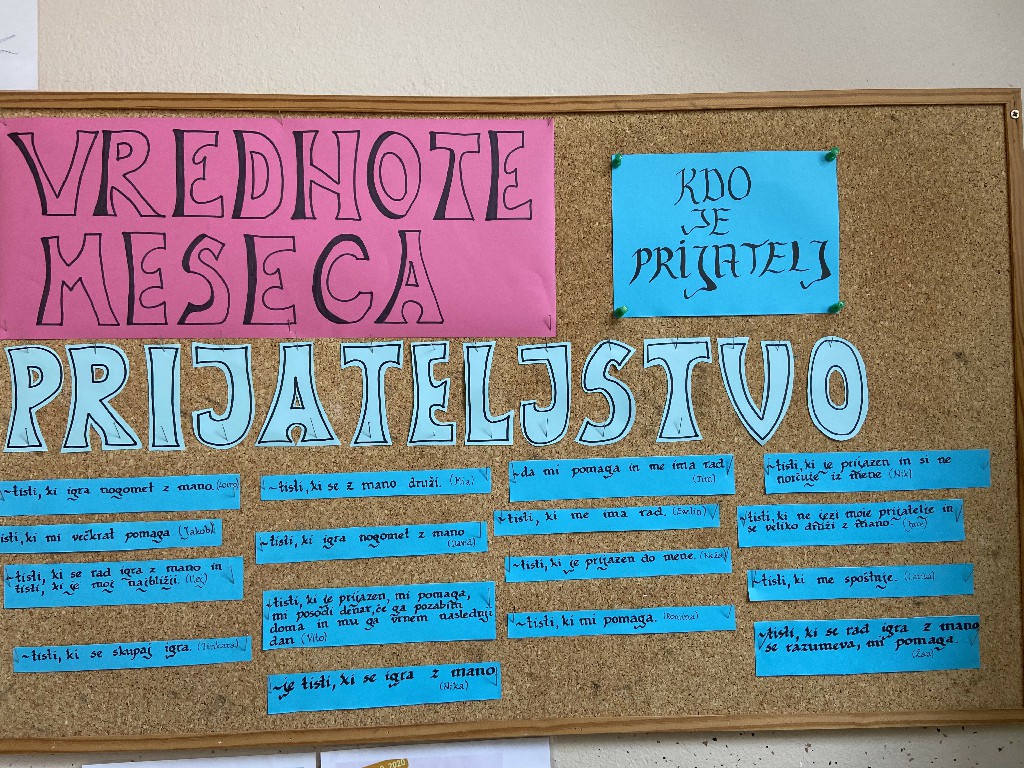 VREDNOTE
MESECA
KDO
JE
PRIJATELJ
PRIJATELJSTVO
~tisti, ki igra nogomet z mano.
tisti, ki mi večkrat pomaga (Jakob)
~tisti, ki se rad igra z mano in
tisti, ki je moj najbližji.
~tisti, ki se skupaj igra.
~tisti, ki se z mano druži. (Pia)
~tisti, ki igra nogomet z mano
~tisti, ki je prijazen, mi pomaga,
mi posodi denar, če ga pozabim
doma in mu ga vrnem naslednji
dan (Vito)
~je tisti, ki se igra z mano
(Nika)
~da mi pomaga in me ima rad
~tisti, ki me ima rad. (Evelin)
~tisti, ki je prijazen do mene.
~tisti, ki mi pomaga.
~tisti, ki je prijazen in si ne
norčuje iz mene (Nik)
~tisti, ki ne moje prijatelje in
se veliko druži z mano
~tisti, ki me spoštuje.
~tisti, ki se rad igra z mano
se razumeva, mi pomaga.
2020